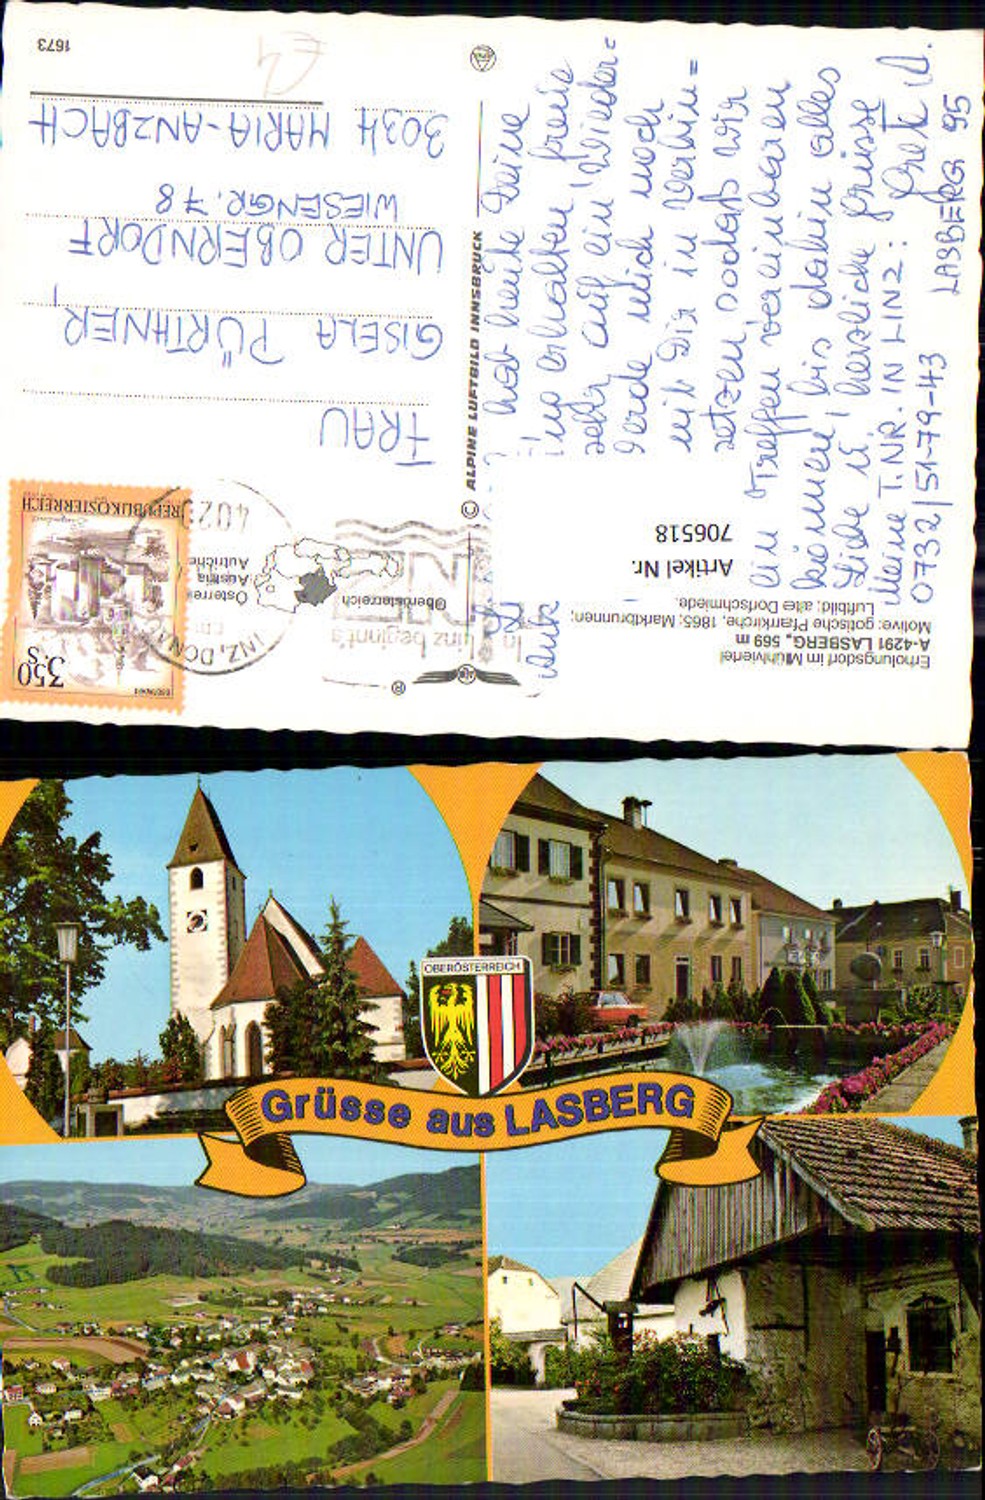 Erholungsdorf im Mühlviertel
A-4291 LASBERG, 569 m
Motive: gotische Pfarrkirche, 1865; Marktbrunnen;
Luftbild; alte Dorfschmiede.
Artikel Nr.
706518
hab heute Deine
erhalten, freue
sehr auf ein Wieder=
werde mich noch
mit Dir in Verbin=
setzen sodaß wir
ein Treffen vereinbaren
können, bis dahin alles
Liebe u. herzliche Grüsse
Meine T.NR. IN LINZ: Gretl
0732/51-79-43 LASBERG 95
© ALPINE LUFTBILD INNSBRUCK
In
Linz beginnt's
Oberösterreich
Austria
Autriche
402
REPUBLIK ÖSTERREICH
3.50 S
FRAU
GISELA PÜRTHNER
UNTER OBERNDORF
WIESENGR. 78
3034 MARIA-ANZBACH
1673
OBERÖSTERREICH
Grüsse aus LASBERG